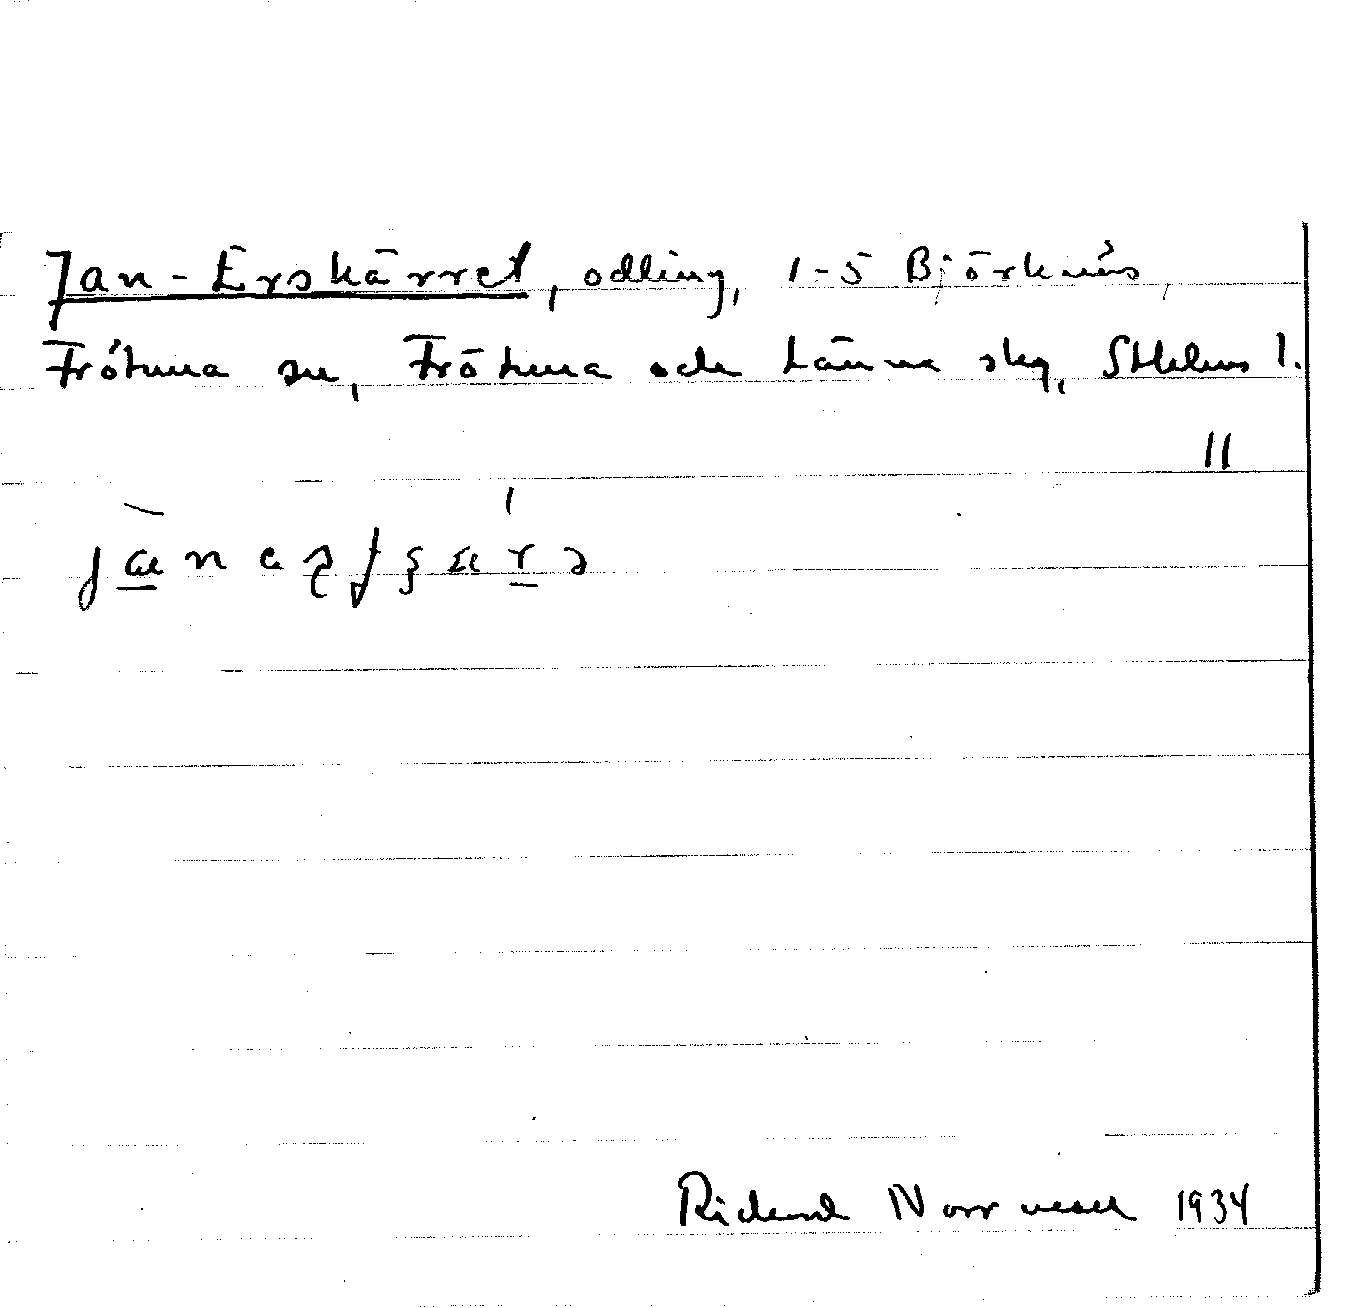 Jan-Erskärret, odling, 1-5 Björknäs,
Frötuna sn, Frötuna och Länna skg, Sthlms l.
II
Richard Norrman 1934